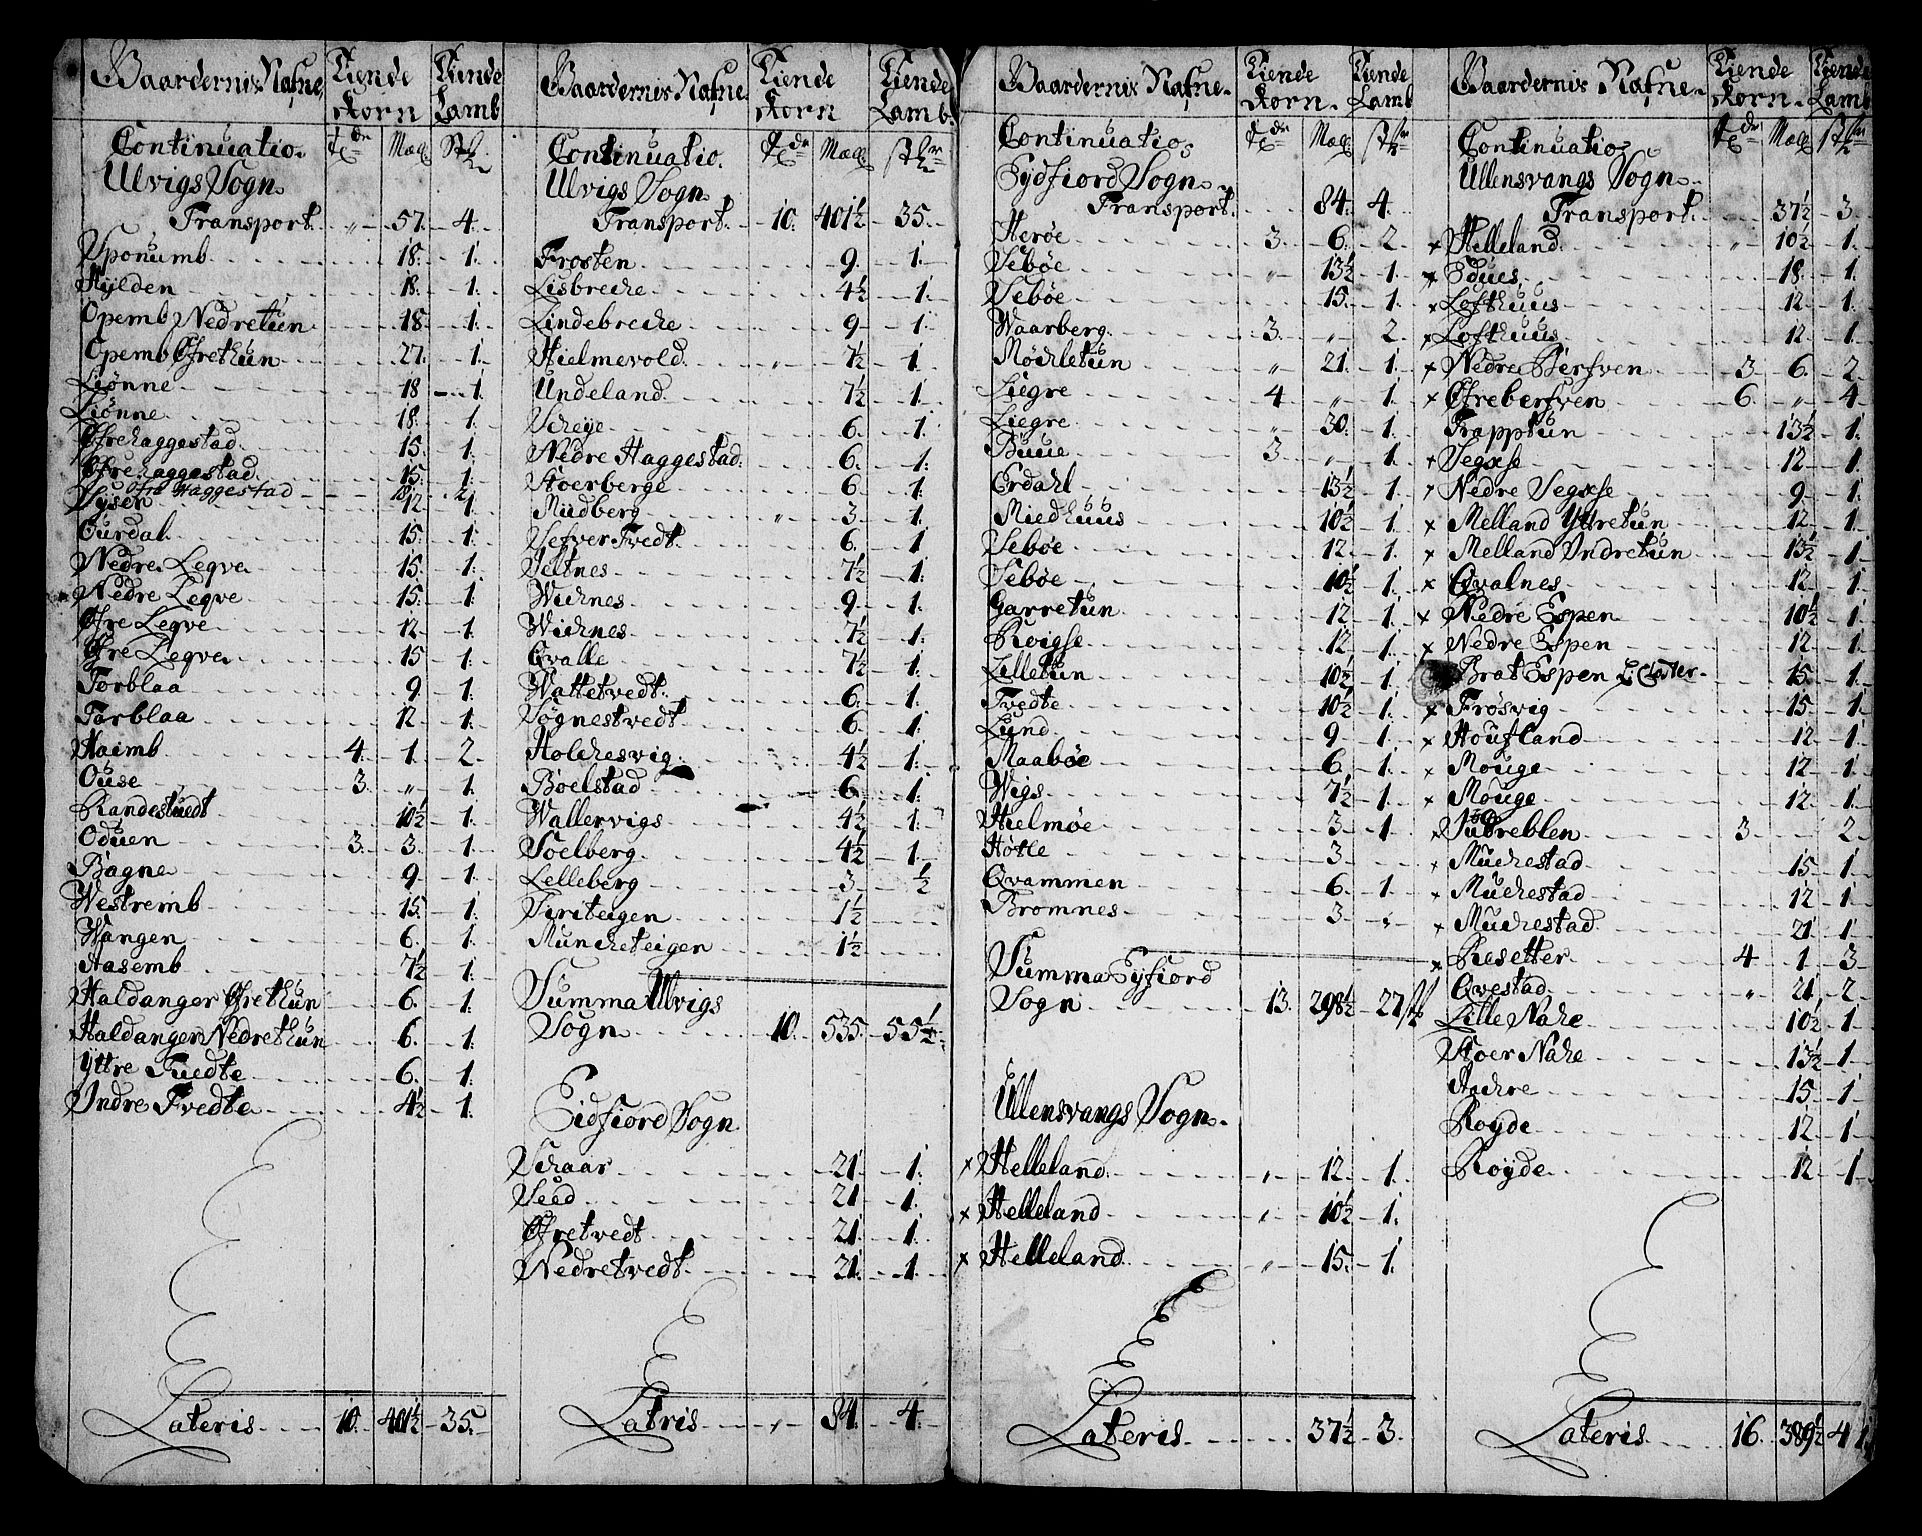 Gaardernis Nafne Tiende Korn Tiende Lamb
Continuatio. Tdr Mæl. Stkr
Ulvigs Sogn.
Transport. „ 57. 4.
Sponumb 18. 1.
Hylden 18. 1.
Opemb Nedretun 18. 1.
Opemb Ofrethun 27. 1.
Liønne 18 1.
Liønne 18. 1.
Ofrehaggestad 15. 1.
Ofrehaggestad 15. 1.
Ofre Haggestad
Sysen 12 1
Ourdal 15. 1.
Nedre Leqve 15. 1.
Nedre Leqve 15. 1.
Ofre Leqve 12 1.
Ofre Leqve 15 1.
Torblaa 9 1.
Torblaa 12 1.
Haimb 4. 1. 2
Ouse 3. „ 1.
Randestuedt 10½ 1.
Oduen 3. 3. 1.
Bagne 9 1.
Westremb 15. 1.
Wangen 6. 1.
Aasemb 7½ 1.
Haldanger Ofrethun 6. 1.
Haldanger Nedrethun 6. 1.
Yttre Tuedte 6. 1.
Indre Tvedte 4½ 1.
Lateris 10. 401½ 35.

Gaardernis Nafne Tiende Korn Tiende Lamb
Continuatio. Tdr Mæl. Stkr
Ulvigs Sogn.
Transport. 10. 401½ 35.
Frosten 9. 1.
Lisbreche 4½ 1.
Lindebreche 9 1.
Hielmevold 7½ 1.
Undeland 7½ 1.
Scheye 6. 1.
Nedre Haggestad 6. 1.
Stoerberge 6. 1.
Mudberg 3. 1.
Sefver Tvedt 6. 1
Seltnes 7½ 1.
Wichnes 9 1.
Wichnes 7½ 1.
Qvalle 7½ 1.
Wattetvedt 6. 1.
Søgnestvedt 6. 1.
Holchesvig 4½ 1.
Boelstad 6. 1.
Wallervigs 4½ 1.
Soelberg 4½ 1.
Lelleberg 3. ½
Siriteigen 1½
Muncheteigen 1½
Summa Ulvigs
Sogn 10. 535. 55½
Eidfiord Sogn
Schaar 21. 1.
Seed 21 1.
Ofretvedt 21. 1.
Nedretvedt 21. 1.
Latris „ 84. 4.

Gaardernis Nafne Tiende Korn. Tiende Lamb
Continuatio Tdr Mæl. Stkr
Eydfiord Sogn.
Transport. 84. 4.
Herøe 3. 6. 2
Sebøe „ 13½ 1.
Sebøe 15. 1.
Waarberg 3. „ 2.
Møchletun „ 21. 1.
Liegre 4 „ 1.
Liegre „ 30. 1.
Buue 3. „ 1.
Erdahl 13½ 1.
Miedhuus 10½ 1.
Sebøe 12. 1.
Sebøe 10½ 1.
Garretun 12 1.
Roigse 12. 1.
Lilletun 10½ 1.
Tvedte 10½ 1.
Lund 9 1.
Maabøe 6. 1.
Wigs 7½ 1.
Hielmøe 3. 1
Hotle 3.
Qvammen 6. 1.
Bromnes 3. „
Summa Eyfiord
Sogn 13. 298½ 27 Stk
Ullensvangs Sogn.
× Helleland „ 12. 1.
× Helleland „ 10½ 1.
× Helleland „ 15. 1.
Lateris 37½ 3.

Gaardernis Nafne Tiende Korn. Tiende Lamb
Continuatio Tdr Mæl. Stkr
Ullensvangs Sogn.
Transport. 37½ 3.
× Helleland „ 10½ 1.
× Edues 18. 1.
× Lofthuus 12 1.
× Lofthuus 12 1.
× Nedre Bersven 3 6. 2
× Ofrebersven 6. „ 4
Trapptun 13½ 1.
× Segse 12 1
× Nedre Segse 9. 1.
× Melland Yttretun 12. 1
× Melland Indretun 13½ 1.
× Qvalnes 12 1.
× Nedre Espen 10½ 1.
× Nedre Espen 12. 1.
Brat Espen L: Closter 15. 1.
× Frøsvig 15 1.
× Houfland 12. 1.
× Mouge 12. 1.
× Mouge 12. 1.
× Jubreblen 3 2.
× Muchestad 15. 1.
× Muchestad 12. 1.
× Muchestad 21. 1.
× Resetter 4. 1 3
Qvestad „ 21. 2
Lille Nahe 10½ 1.
Stoer Nahe 13½ 1
Aachre 15. 1
Royde 12. 1
Royde 12 1
Lateris 16. 389½ 41